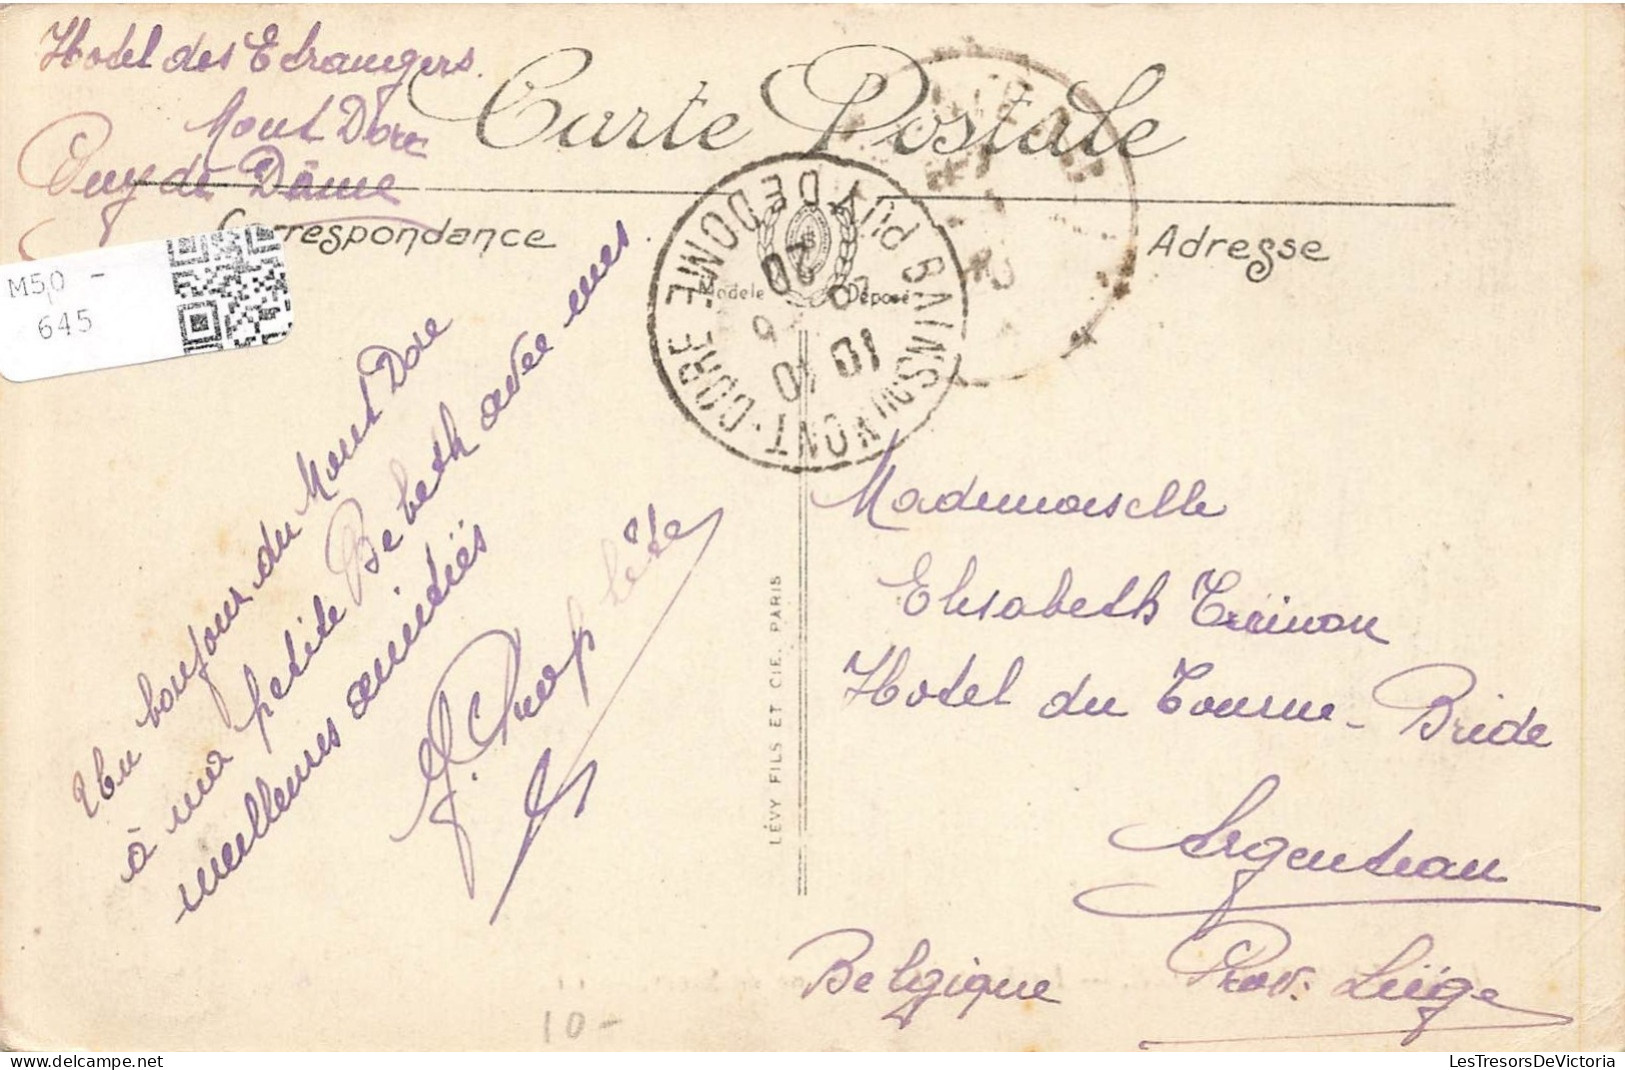 Hotel des Etrangers
Mont Dore
Puy de Dôme
Carte Postale
Correspondance
Adresse
Modèle Déposé
BAINS DU MONT-DORE
PUY DE DOME
M50 -
645
Un bonjour du Mont Dore
à ma petite Bebeth avec mes
meilleures amitiés
LÉVY FILS ET CIE, PARIS
Mademoiselle
Elisabeth
Hotel du Tourne-Bride
Argenteau
Belgique Prov. Liège
10-
LesTresorsDeVictoria.com